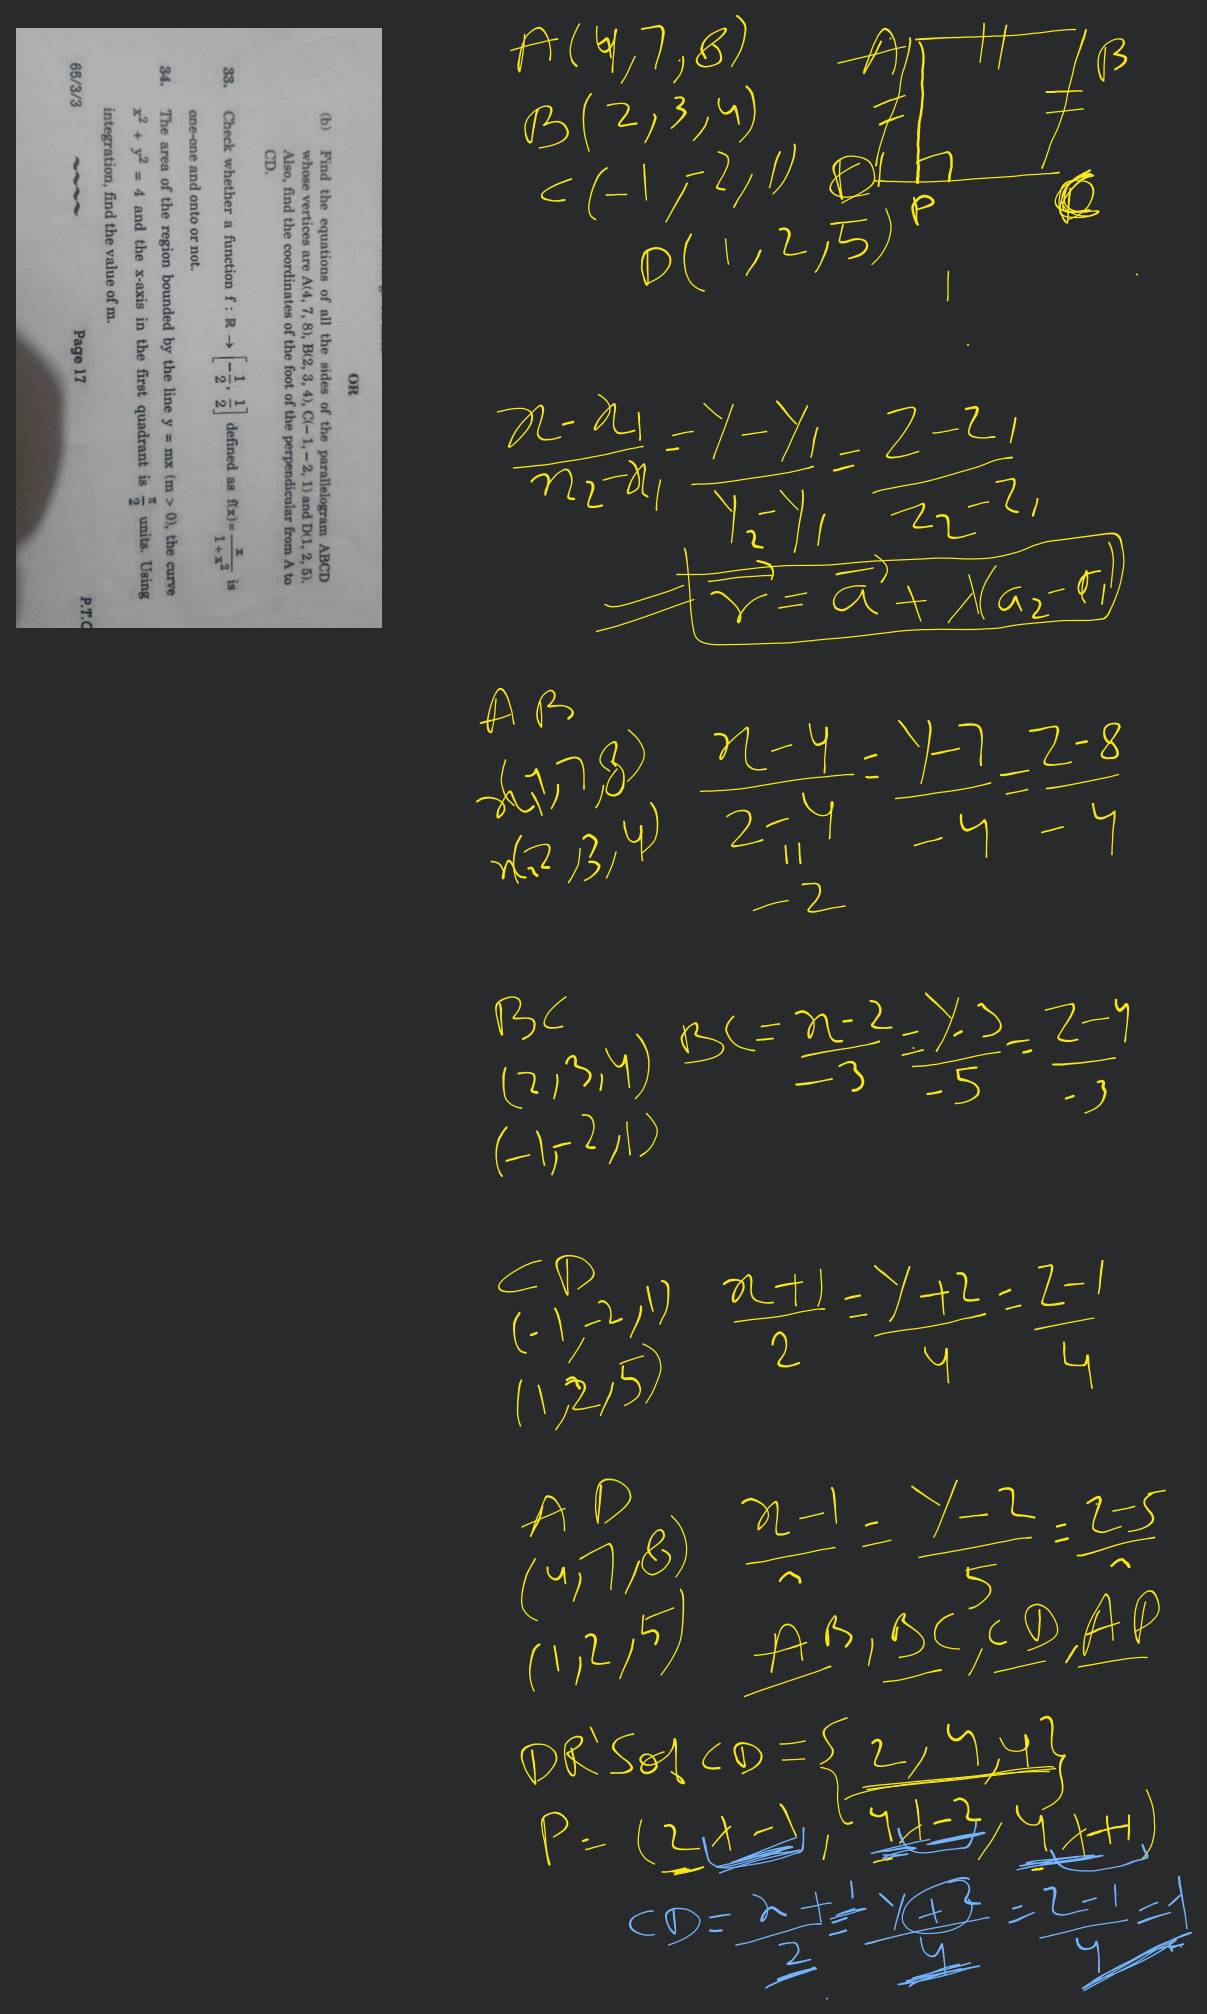 OR
(b) Find the equations of all the sides of the parallelogram ABCD
whose vertices are A(4, 7, 8), B(2, 3, 4), C(– 1, – 2, 1) and D(1, 2, 5).
Also, find the coordinates of the foot of the perpendicular from A to
CD.
33. Check whether a function f : R → [-1/2, 1/2] defined as f(x) = x/(1+x²) is
one-one and onto or not.
34. The area of the region bounded by the line y = mx (m > 0), the curve
x² + y² = 4 and the x-axis in the first quadrant is π/2 units. Using
integration, find the value of m.
65/3/3 Page 17 P.T.O
A(4,7,8)
B(2,3,4)
C(-1,-2,1)
D(1,2,5)
A B
D P C
(x-x₁)/(x₂-x₁) = (y-y₁)/(y₂-y₁) = (z-z₁)/(z₂-z₁)
r = a + λ(a₂-a₁)
AB
(4,7,8)
(2,3,4)
(x-4)/(2-4) = (y-7)/-4 = (z-8)/-4
-2
BC
(2,3,4)
(-1,-2,1)
BC = (x-2)/-3 = (y-3)/-5 = (z-4)/-3
CD
(-1,-2,1)
(1,2,5)
(x+1)/2 = (y+2)/4 = (z-1)/4
AD
(4,7,8)
(1,2,5)
(x-1)/3 = (y-2)/5 = (z-5)/3
AB, BC, CD, AD
DR'S of CD = {2,4,4}
P = (2λ-1, 4λ-2, 4λ+1)
CD = (x+1)/2 = (y+2)/4 = (z-1)/4 = λ